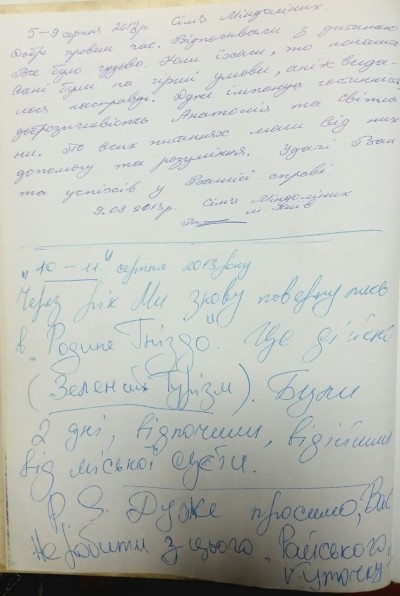 5-9 серпня 2013р. Сім'я Міндолiних.
Добре провели час. Відпочивали з дитиною.
Все було чудово. Коли їхали, то
були на гірші умови, аніж вида-
лося насправді. Дуже імпонує гостинність
доброзичливість Анатолія та Світла-
ни. По всіх питаннях мали від них
допомогу та розуміння. Удачі Вам
та успіхів у Вашій справі
9.08.2013р. Сім'я Міндолiних
м. Київ
„10 - 11" серпня 2013 року
Через рік Ми знову повернулись
в „Родине Гніздо". Це дійсно
(Зелений Турізм). Були
2 дні, відпочили, відійшли
від міської суєти.
P.S. Дуже просимо, Вас
Не робити з цього „Райського,
куточку"